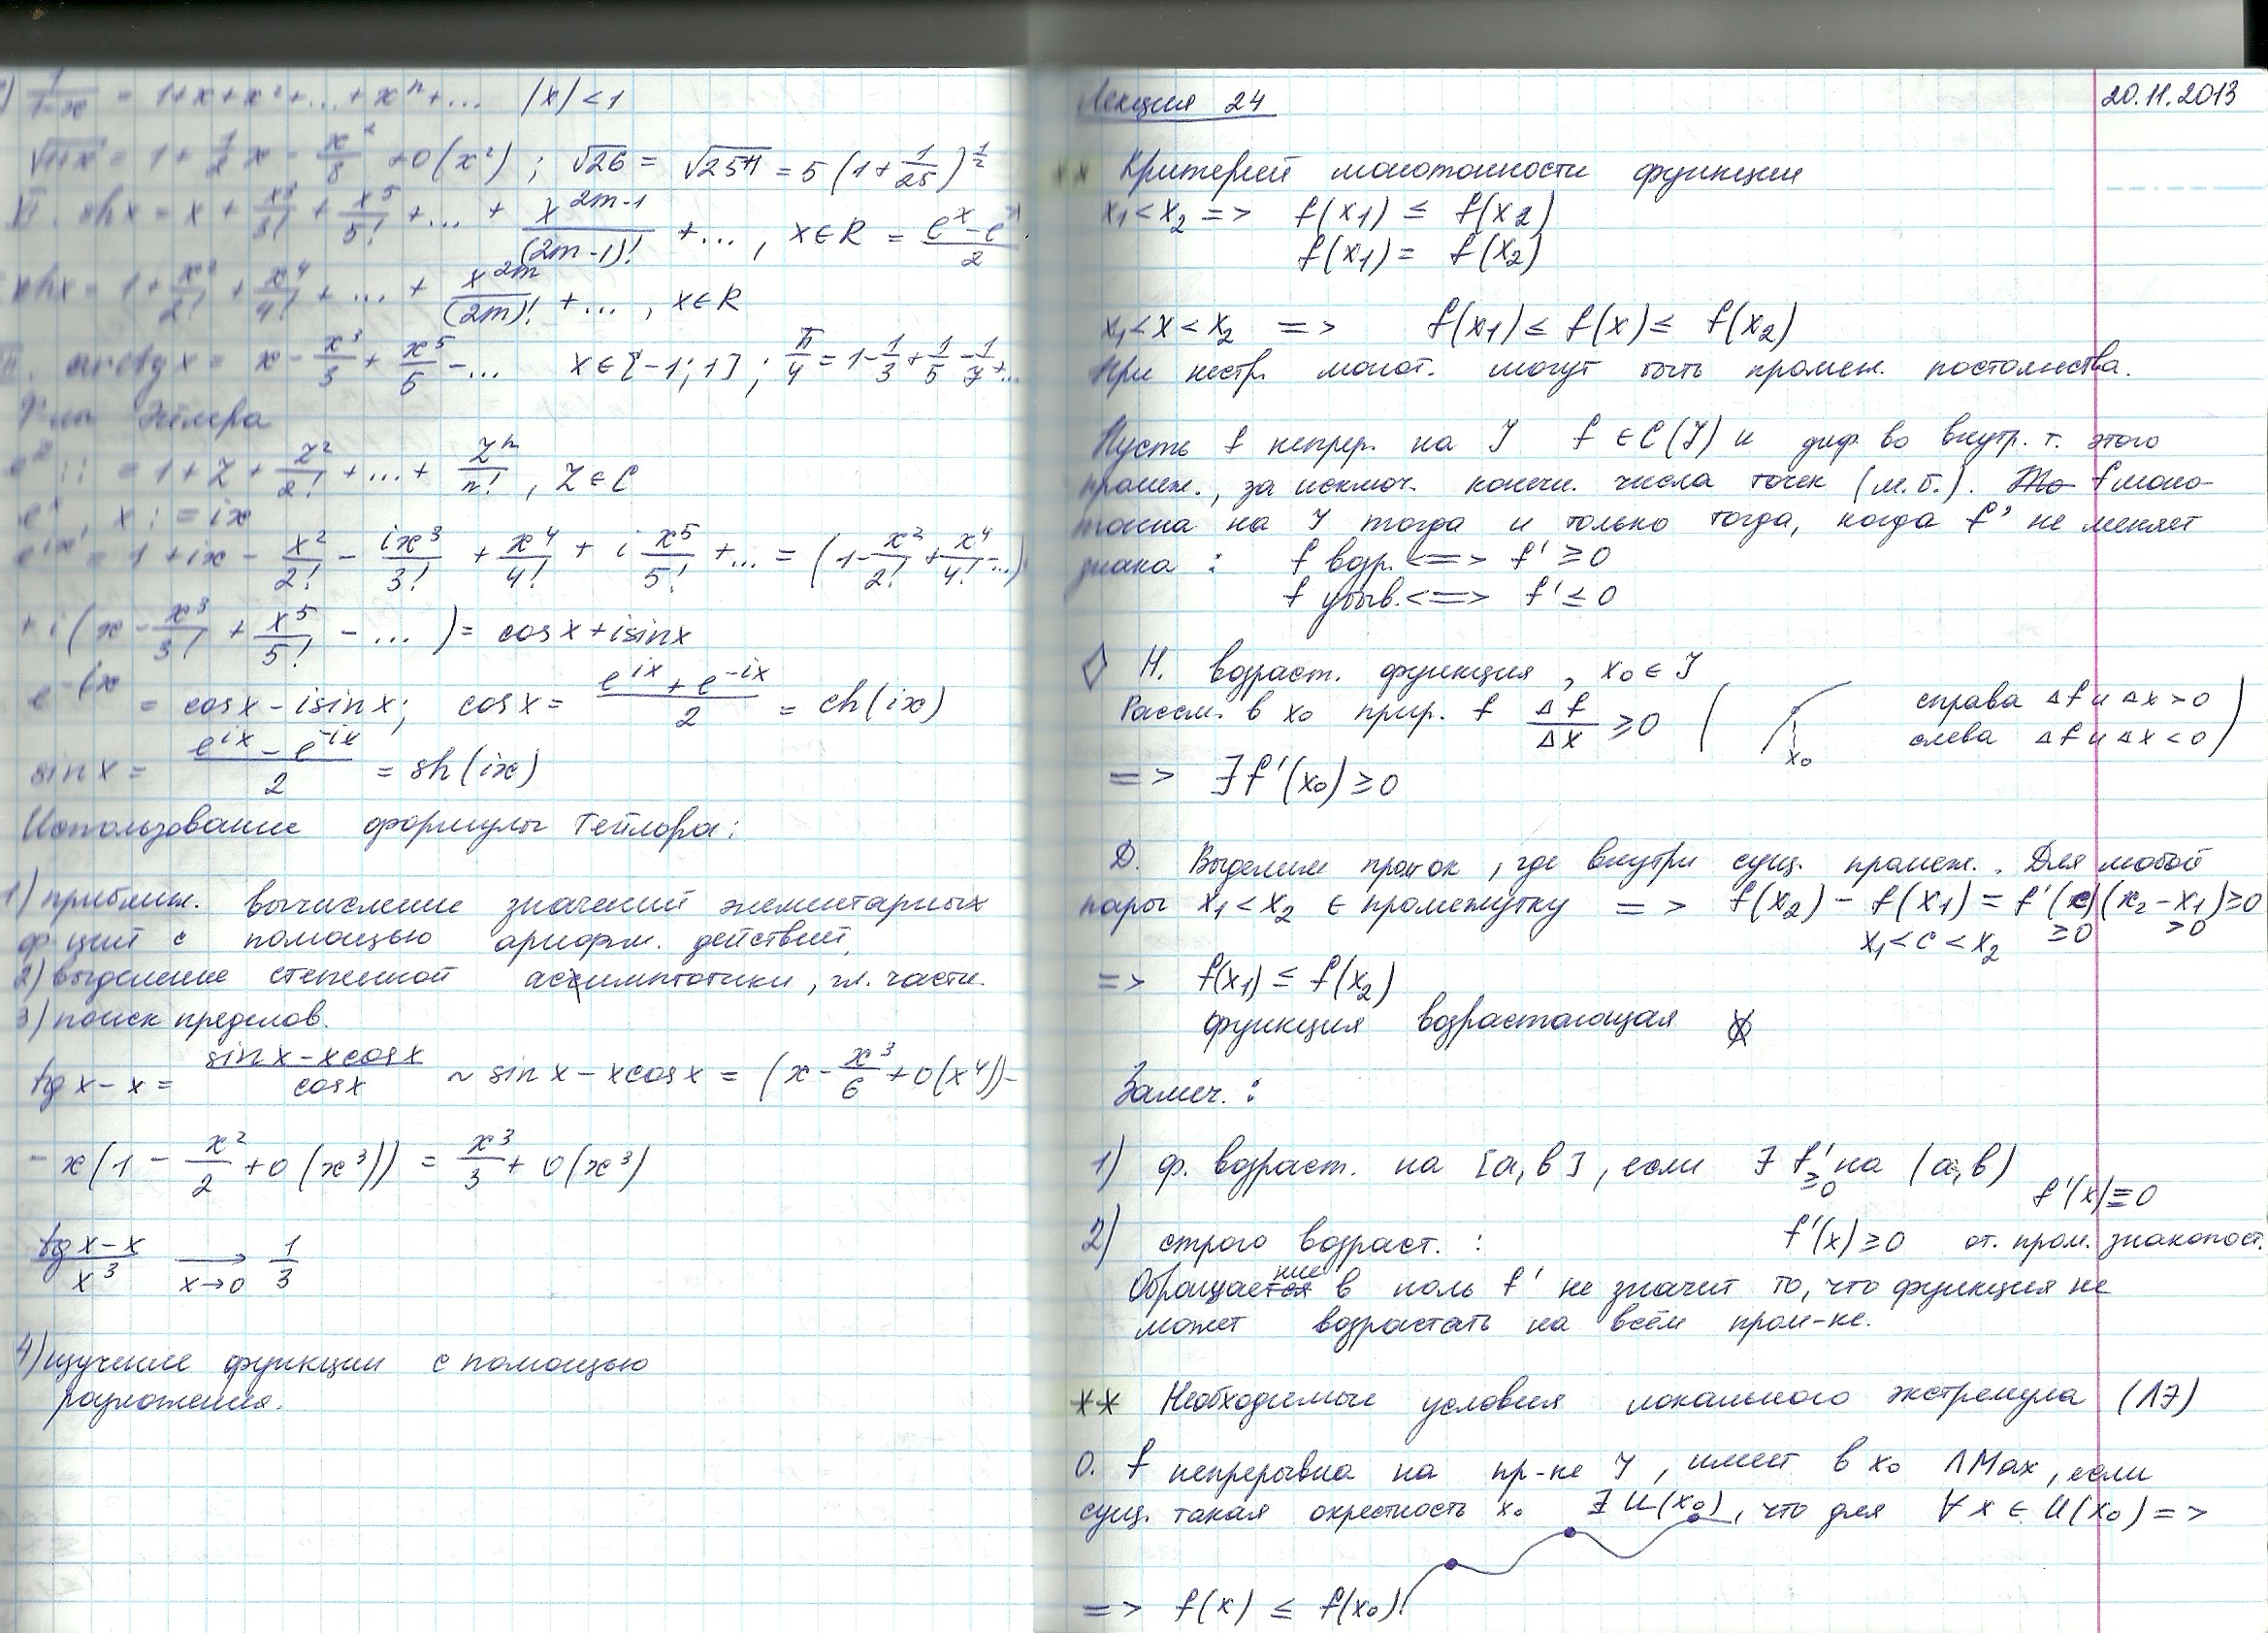 ) 1/(1-x) = 1+x+x²+...+xⁿ+... |x|<1
√(1+x) = 1 + 1/2 x - x²/8 + o(x²) ; √26 = √(25+1) = 5(1+1/25)^(1/2)
shx = x + x³/3! + x⁵/5! + ... + x^(2m-1)/(2m-1)! + ... , x∈R = (e^x - e^-x)/2
chx = 1 + x²/2! + x⁴/4! + ... + x^(2m)/(2m)! + ... , x∈R
arctgx = x - x³/3 + x⁵/5 - ... x∈[-1;1] ; π/4 = 1 - 1/3 + 1/5 - 1/7 + ...
Ф-лы Эйлера
e^z := 1 + z + z²/2! + ... + zⁿ/n! , z∈C
e^x, x := ix
e^(ix) = 1 + ix - x²/2! - ix³/3! + x⁴/4! + i x⁵/5! + ... = (1 - x²/2! + x⁴/4! - ...)
+ i(x - x³/3! + x⁵/5! - ...) = cosx + isinx
e^(-ix) = cosx - isinx; cosx = (e^(ix) + e^(-ix))/2 = ch(ix)
sinx = (e^(ix) - e^(-ix))/2 = sh(ix)
Использование формулы Тейлора:
1) приближ. вычисление значений элементарных
ф-ций с помощью арифм. действий.
2) выделение степенной асимптотики, гл. части.
3) поиск пределов.
tgx - x = (sinx - xcosx)/cosx ~ sinx - xcosx = (x - x³/6 + o(x⁴)) -
- x(1 - x²/2 + o(x³)) = x³/3 + o(x³)
(tgx - x)/x³ → 1/3
x→0
4) изучение функции с помощью
разложения.
Лекция 24 20.11.2013
** Критерий монотонности функции
x₁<x₂ => f(x₁) ≤ f(x₂)
f(x₁) = f(x₂)
x₁<x<x₂ => f(x₁) ≤ f(x) ≤ f(x₂)
При нестр. монот. могут быть промеж. постоянства.
Пусть f непрер. на J f∈C(J) и диф. во внутр. т. этого
промеж., за исключ. конечн. числа точек (м.б.). То f моно-
тонна на J тогда и только тогда, когда f' не меняет
знака : f возр. <=> f' ≥ 0
f убыв. <=> f' ≤ 0
◊ Н. возраст. функция, x₀∈J
Рассм. в x₀ прир. f Δf/Δx ≥ 0 ( x₀ справа Δf и Δx > 0
слева Δf и Δx < 0 )
=> ∃ f'(x₀) ≥ 0
D. Выделим пром-ок, где внутри сущ. промеж.. Для любой
пары x₁<x₂ ∈ промежутку => f(x₂) - f(x₁) = f'(c)(x₂-x₁) ≥ 0
x₁<c<x₂ ≥0 >0
=> f(x₁) ≤ f(x₂)
функция возрастающая
Замеч. :
1) ф. возраст. на [a,b], если ∃ f' ≥0 на (a,b)
f'(x) ≡ 0
2) строго возраст. : f'(x) ≥ 0 от. пром. знакопост.
Обращение в ноль f' не значит то, что функция не
может возрастать на всём пром-ке.
** Необходимые условия локального экстремума (ЛЭ)
О. f непрерывна на пр-ке J, имеет в x₀ ЛMax, если
сущ. такая окрестность x₀ ∃ U(x₀), что для ∀x∈U(x₀) =>
=> f(x) ≤ f(x₀)!